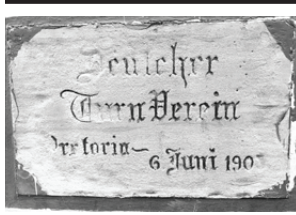 Deutscher
Turn Verein
Pretoria—
6 Juni 190